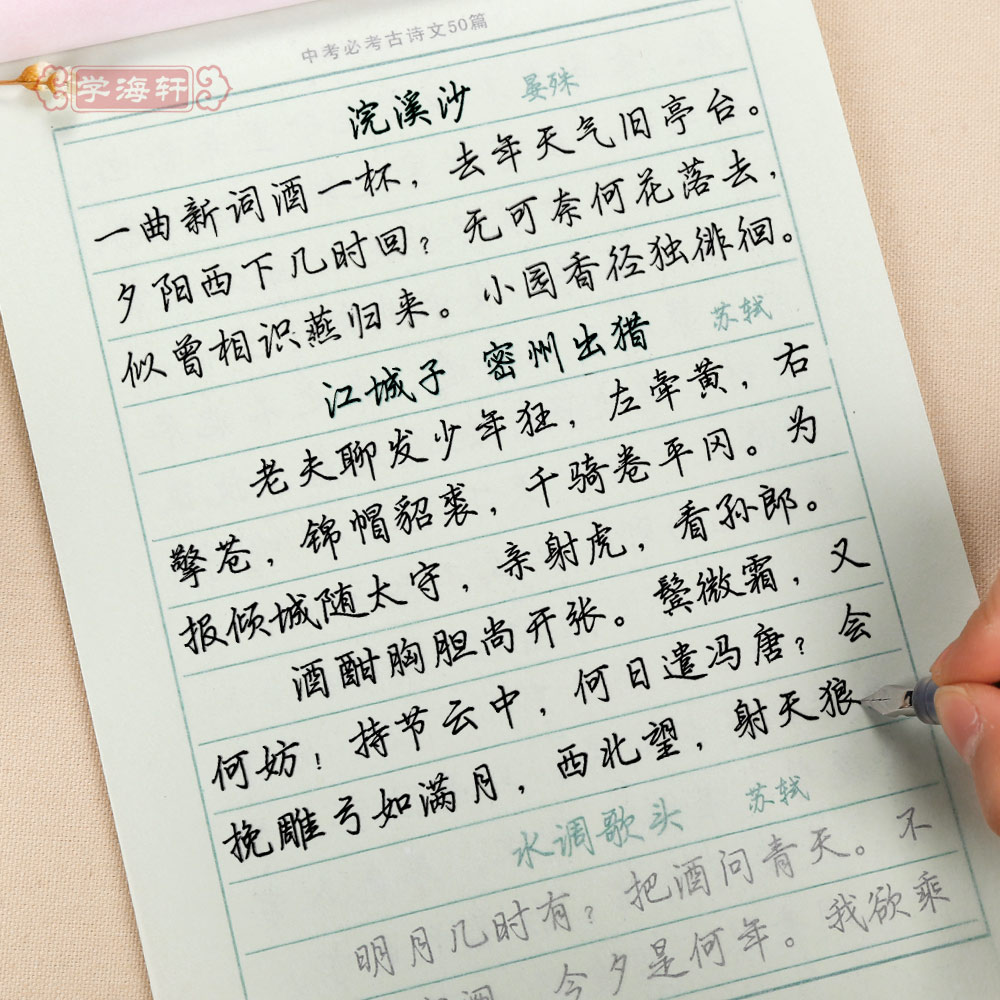 中考必考古诗文50篇
学海轩
浣溪沙 晏殊
一曲新词酒一杯，去年天气旧亭台。
夕阳西下几时回？无可奈何花落去，
似曾相识燕归来。小园香径独徘徊。
江城子 密州出猎 苏轼
老夫聊发少年狂，左牵黄，右
擎苍，锦帽貂裘，千骑卷平冈。为
报倾城随太守，亲射虎，看孙郎。
酒酣胸胆尚开张。鬓微霜，又
何妨！持节云中，何日遣冯唐？会
挽雕弓如满月，西北望，射天狼
水调歌头 苏轼
明月几时有？把酒问青天。不
今夕是何年。我欲乘